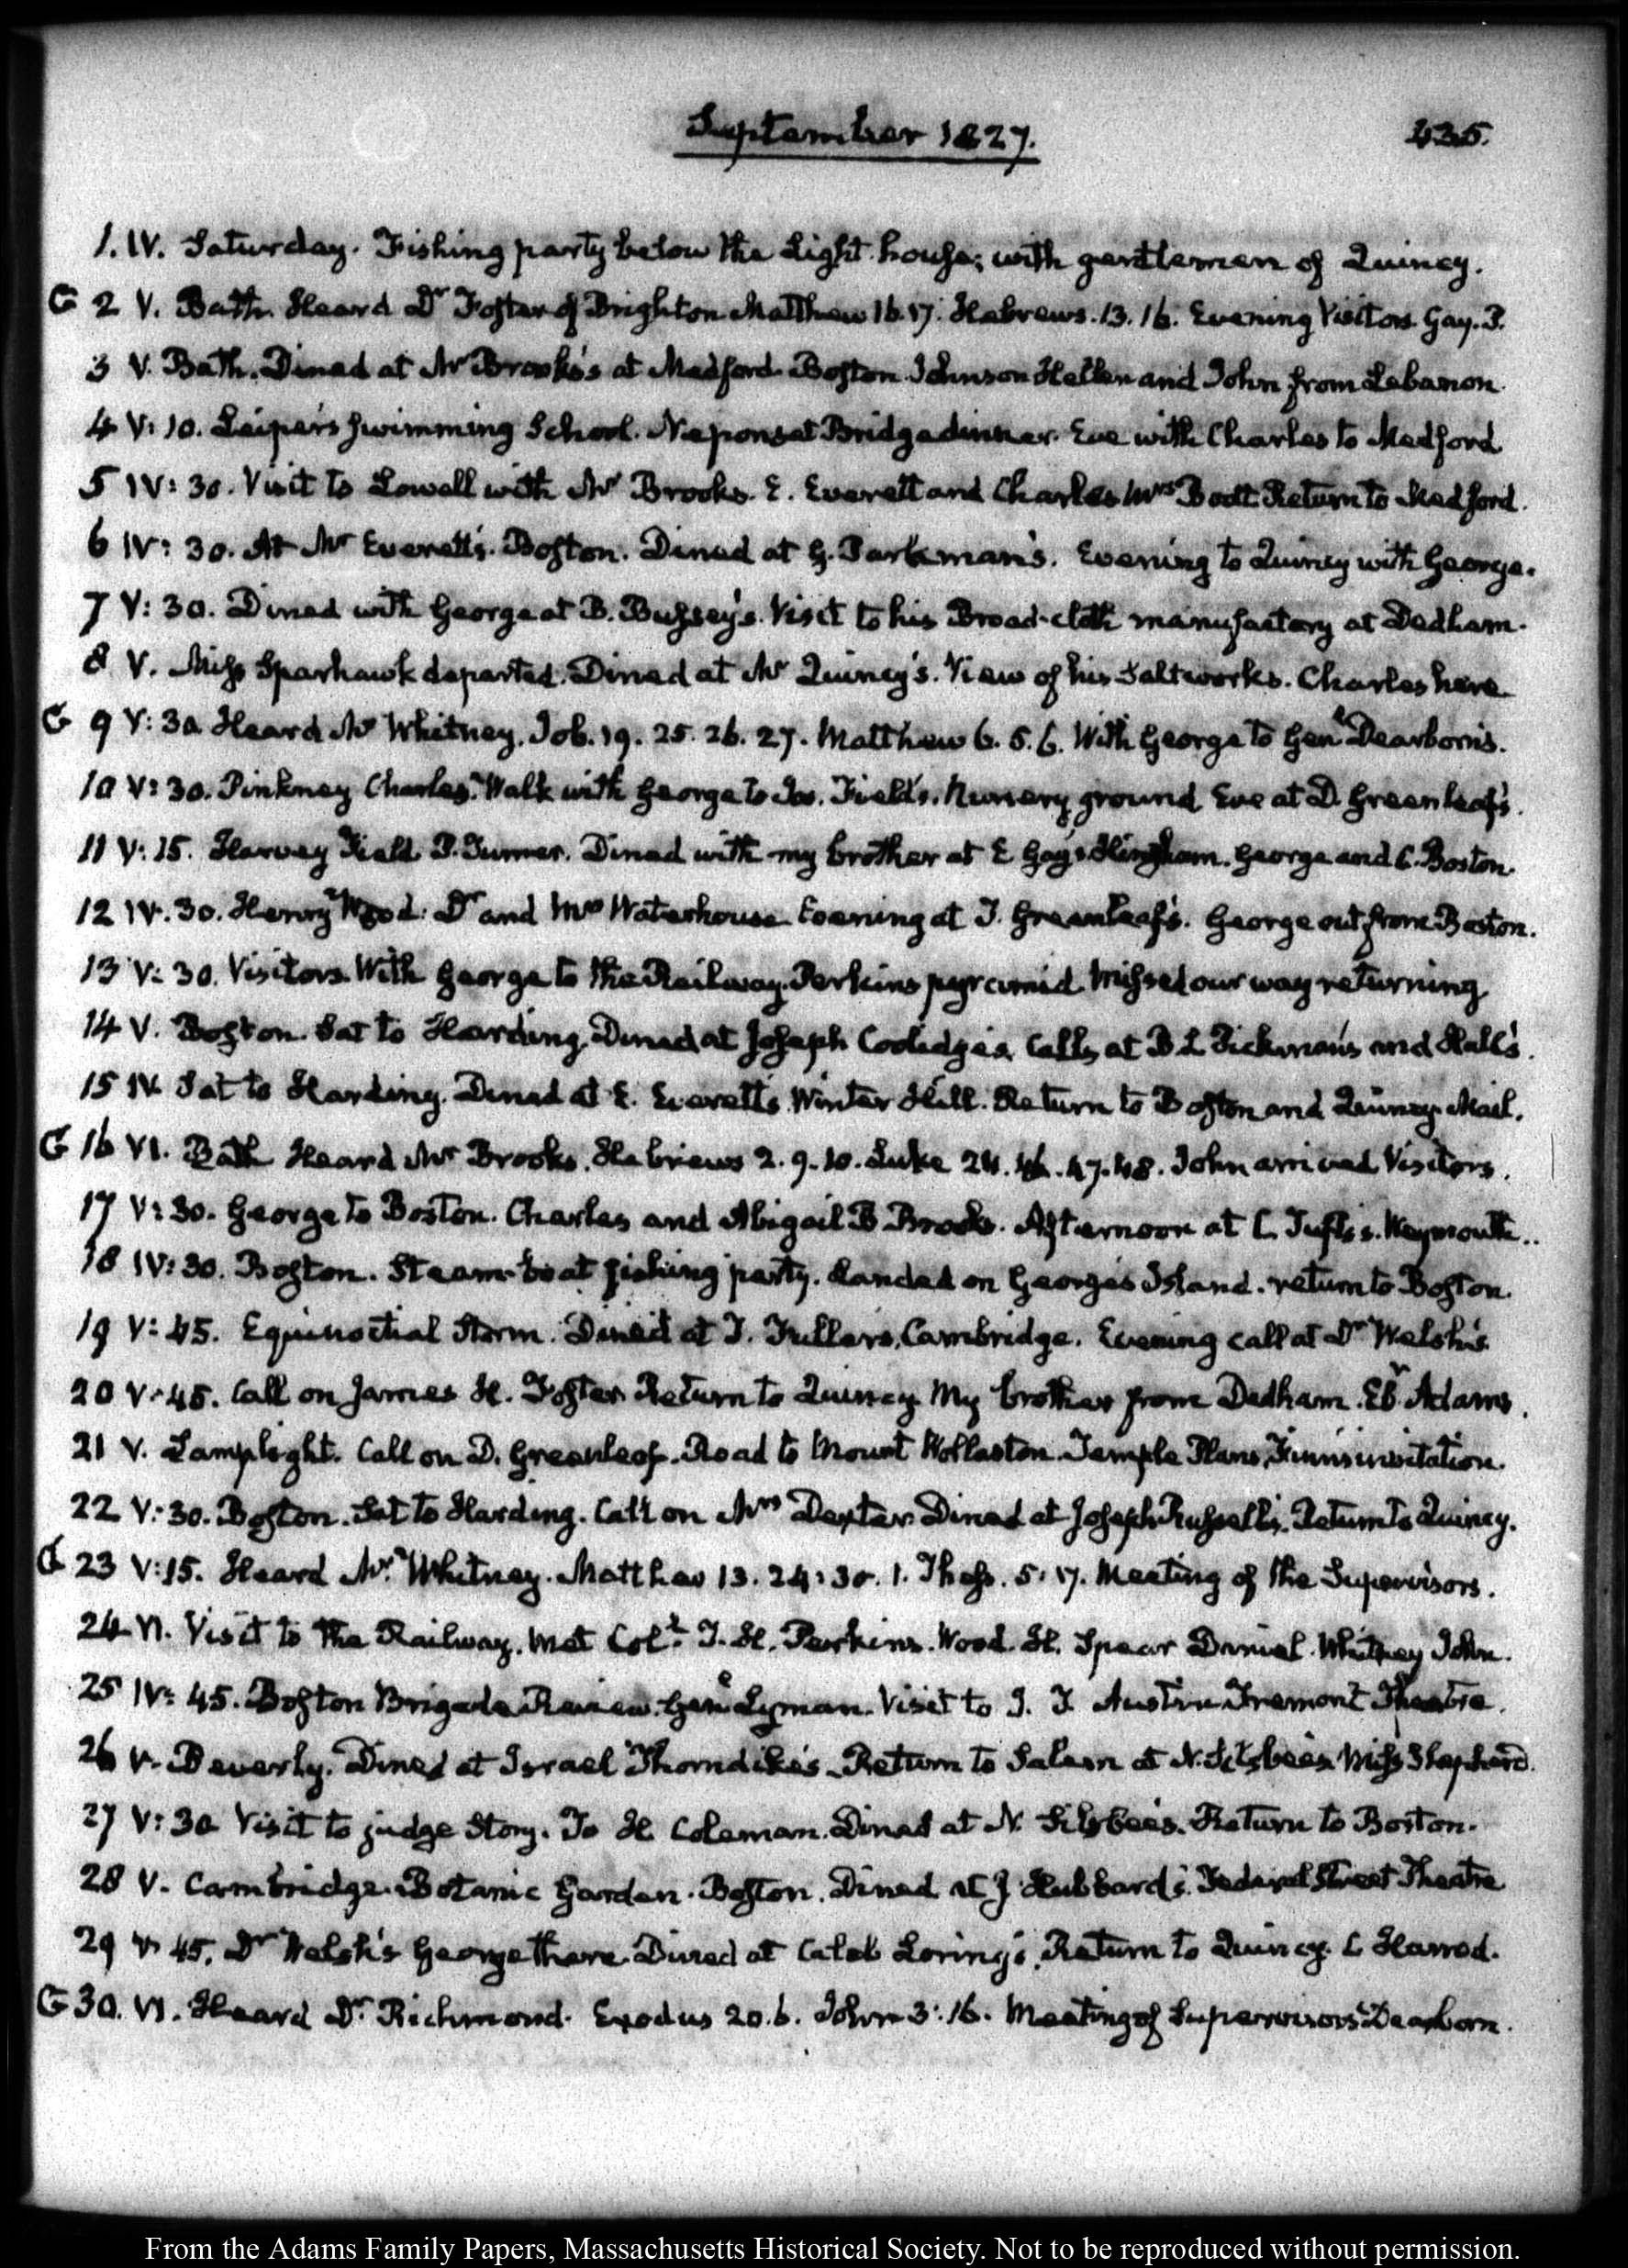 September 1827.
435.
1. IV. Saturday. Fishing party below the Light house; with gentlemen of Quincy.
G 2 V. Bath. Heard Dr Foster of Brighton Matthew 16.17. Hebrews. 13. 16. Evening Visitors. Gay. P.
3 V. Bath. Dined at Mr Brooks's at Medford. Boston Johnson Hellen and John from Lebanon.
4 V: 10. Leiper's swimming School. Neponset Bridge dinner. Eve with Charles to Medford
5 IV: 30. Visit to Lowell with Mr Brooks. E. Everett and Charles Mrs Bott Return to Medford.
6 IV: 30. At Mr Everett's. Boston. Dined at G. Parkman's. Evening to Quincy with George.
7 V: 30. Dined with George at B. Bussey's. Visit to his Broad-cloth manufactory at Dedham.
8 V. Miss Sparhawk departed. Dined at Mr Quincy's. View of his Saltworks. Charles here
G 9 V: 30 Heard Mr Whitney. Job. 19. 25. 26. 27. Matthew 6. 5. 6. With George to Genl Dearborn's.
10 V: 30. Pinkney Charles. Walk with George to Jos. Field's. Nursery ground Eve at D. Greenleaf's.
11 V: 15. Harvey Field. P. Turner. Dined with my brother at E Gay's Hingham. George and C. Boston.
12 IV. 30. Henry Wood. Dr and Mrs Waterhouse Evening at T. Greenleaf's. George out from Boston.
13 V: 30. Visitors. With George to the Railway. Perkins pyramid Missed our way returning
14 V. Boston. Sat to Harding. Dined at Joseph Coolidge's. Calls at B L Pickman's and Hall's.
15 IV. Sat to Harding. Dined at E. Everett's Winter Hill. Return to Boston and Quincy. Mail.
G 16 VI. Bath Heard Mr Brooks. Hebrews 2. 9. 10. Luke 24. 46. 47. 48. John arrived Visitors.
17 V: 30. George to Boston. Charles and Abigail B Brooks. Afternoon at C. Tufts's. Weymouth..
18 IV: 30. Boston. Steam-boat fishing party. Landed on George's Island. return to Boston.
19 V: 45. Equinoctial Storm. Dined at T. Fullers, Cambridge. Evening call at Dr Welsh's
20 V: 45. Call on James H. Foster Return to Quincy. My brother from Dedham. Ebr Adams.
21 V. Lamplight. Call on D. Greenleaf. Road to Mount Wollaston. Temple Plans invitation.
22 V: 30. Boston. Sat to Harding. Call on Mrs Dexter. Dined at Joseph Russell's. Return to Quincy.
G 23 V: 15. Heard Mr Whitney. Matthew 13. 24: 30. 1. Thess. 5: 17. Meeting of the Supervisors.
24 VI. Visit to the Railway. Met Coll. T. H. Perkins. Wood. H. Spear Daniel. Whitney John.
25 IV: 45. Boston Brigade Review. Genl Lyman. Visit to J. T. Austin Tremont Theatre.
26 V. Beverly. Dined at Israel Thorndike's. Return to Salem at N. Silsbee's Miss Shepherd.
27 V: 30 Visit to judge Story. To H. Coleman. Dined at N. Silsbee's. Return to Boston.
28 V. Cambridge. Botanic Garden. Boston. Dined at J Hubbard's. Federal Street Theatre
29 V: 45. Dr Welsh's George there. Dined at Caleb Loring's. Return to Quincy. C Harrod.
G 30. VI. Heard Dr Richmond. Exodus 20. 6. John 3: 16. Meeting of Supervisors Dearborn.
From the Adams Family Papers, Massachusetts Historical Society. Not to be reproduced without permission.